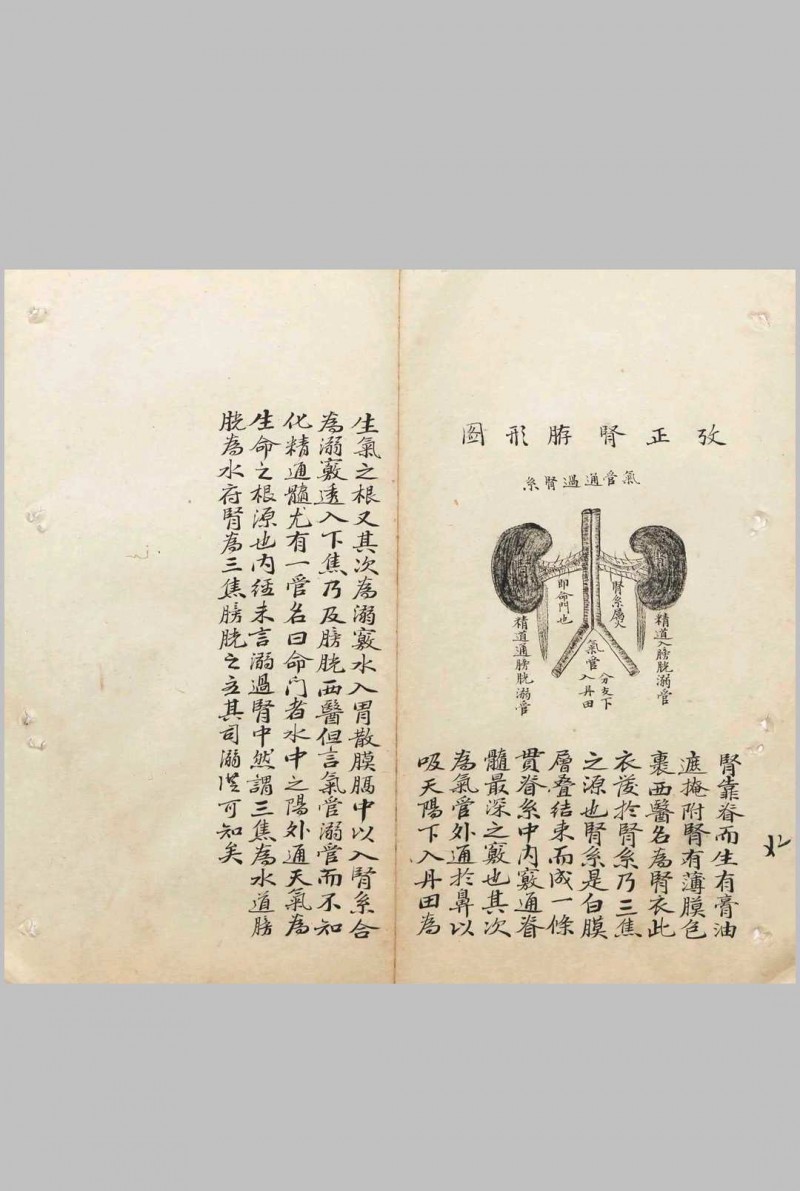 攷正腎脏形圖
氣管通過腎系
腎系屬火
即命門也
精道入膀胱溺管
精道通膀胱溺管
氣管入丹田
分支下
腎靠脊而生有膏油
遮掩附腎有薄膜包
裹西醫名為腎衣此
衣後於腎系乃三焦
之源也腎系是白膜
層叠結束而成一條
貫脊系中内竅通脊
髓最深之竅也其次
為氣管外通於鼻以
吸天陽下入丹田為
生氣之根又其次為溺竅水入胃散膜膈中以入腎系合
為溺竅透入下焦乃及膀胱西醫但言氣管溺管而不知
化精通髓尤有一管名曰命门者水中之陽外通天氣為
生命之根源也内經未言溺過腎中然謂三焦為水道膀
胱為水府腎為三焦膀胱之主其司溺從可知矣